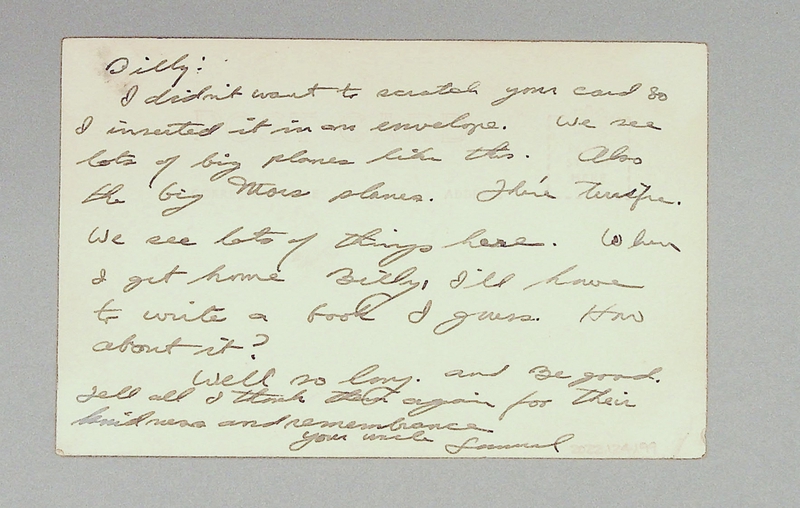 Billy:
I didn't want to scratch your card so
I inserted it in an envelope. We see
lots of big planes like this. Also
the big Mars planes. They're
We see lots of things here. When
I get home Billy, I'll have
to write a book I guess. How
about it?
Well so long. and Be good.
Tell all I thank them again for their
kindness and remembrance
your uncle Samuel